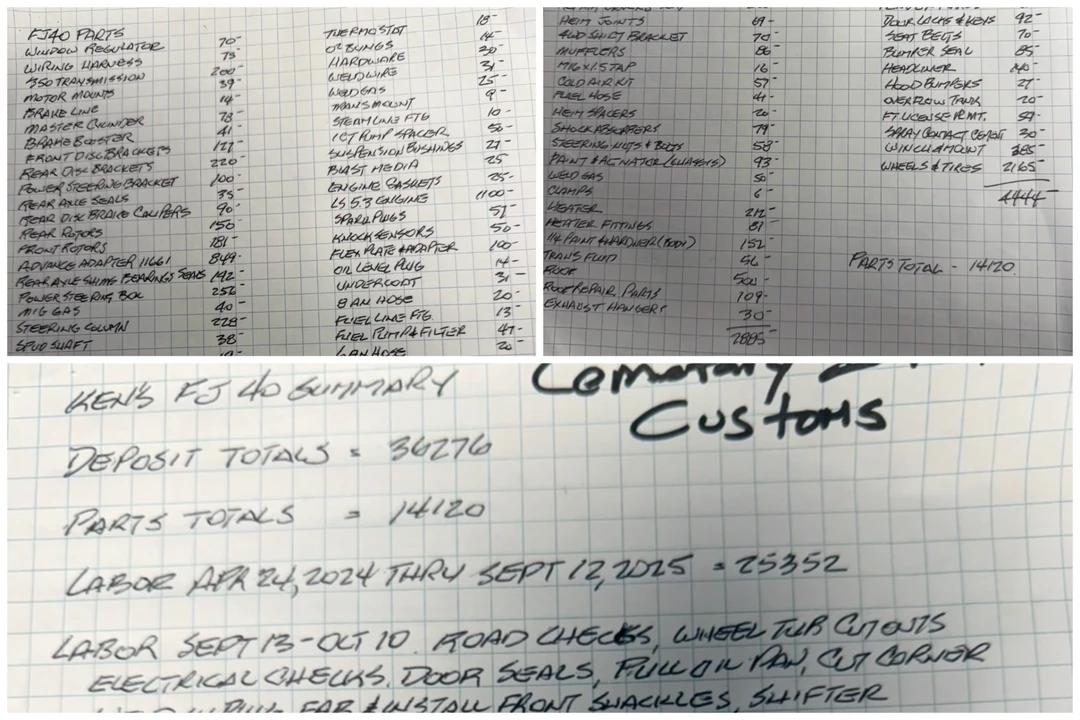 FJ40 PARTS
WINDOW REGULATOR 70-
WIRING HARNESS 75
350 TRANSMISSION 200-
MOTOR MOUNTS 39-
BRAKE LINE 14-
MASTER CYLINDER 78
BRAKE BOOSTER 41
FRONT DISC BRACKETS 127
REAR DISC BRACKETS 220
POWER STEERING BRACKET 100-
REAR AXLE SEALS 35
REAR DISC BRAKE CALIPERS 90-
REAR ROTORS 150
FRONT ROTORS 181-
ADVANCE ADAPTER 849-
REAR AXLE SHIMS BEARINGS SEALS 192
POWER STEERING BOX 256
MIG GAS 40
STEERING COLUMN 228-
SPUD SHAFT 38
THERMOSTAT 18-
O2 BUNGS 14-
HARDWARE 30-
WELD WIRE 31-
WELD GAS 25-
TRANS MOUNT 9-
STEAM LINE FTG 10-
1CT PUMP SPACER 50-
SUSPENSION BUSHINGS 27-
BLAST MEDIA 25
ENGINE GASKETS 25-
LS 5.3 ENGINE 1100-
SPARK PLUGS 57-
KNOCK SENSORS 50-
FLEX PLATE & ADAPTER 100-
OIL LEVEL PLUG 14-
UNDERCOAT 31-
8 AN HOSE 20-
FUEL LINE FTG. 13-
FUEL PUMP & FILTER 47-
6 AN HOSE 20-
HEIM JOINTS 69-
4WD SHIFT BRACKET 70-
MUFFLERS 80-
M16x1.5 TAP 16-
COLD AIR KIT 57-
FUEL HOSE 41-
HEIM SPACERS 20-
SHOCK ABSORBERS 79-
STEERING NUTS & BOLTS 58-
PAINT & ACTIVATOR (CHASSIS) 93-
WELD GAS 50-
CLAMPS 6-
HEATER 212-
HEATER FITTINGS 81
PAINT & HARDNER (BODY) 152-
TRANS FLUID 56-
ROOF 500-
ROOF REPAIR PARTS 109-
EXHAUST HANGERS 30-
2885-
DOOR LOCKS & KEYS 92-
SEAT BELTS 70-
BUMPER SEAL 85-
HEADLINER 140-
HOOD BUMPERS 27-
OVERFLOW TANK 20-
FT. LICENSE P. MT. 59-
SPRAY CONTACT CEMENT 30-
WINCH & MOUNT 385-
WHEELS & TIRES 2165-
4444-
PARTS TOTAL - 14120
Customs
KEN'S FJ 40 SUMMARY
DEPOSIT TOTALS = 36276
PARTS TOTALS = 14120
LABOR APR 24, 2024 THRU SEPT 12, 2025 = 25352
LABOR SEPT 13 - OCT 10. ROAD CHECKS, WHEEL TUB CUTOUTS
ELECTRICAL CHECKS, DOOR SEALS, PULL OIL PAN, CUT CORNER
& INSTALL FRONT SHACKLES, SHIFTER